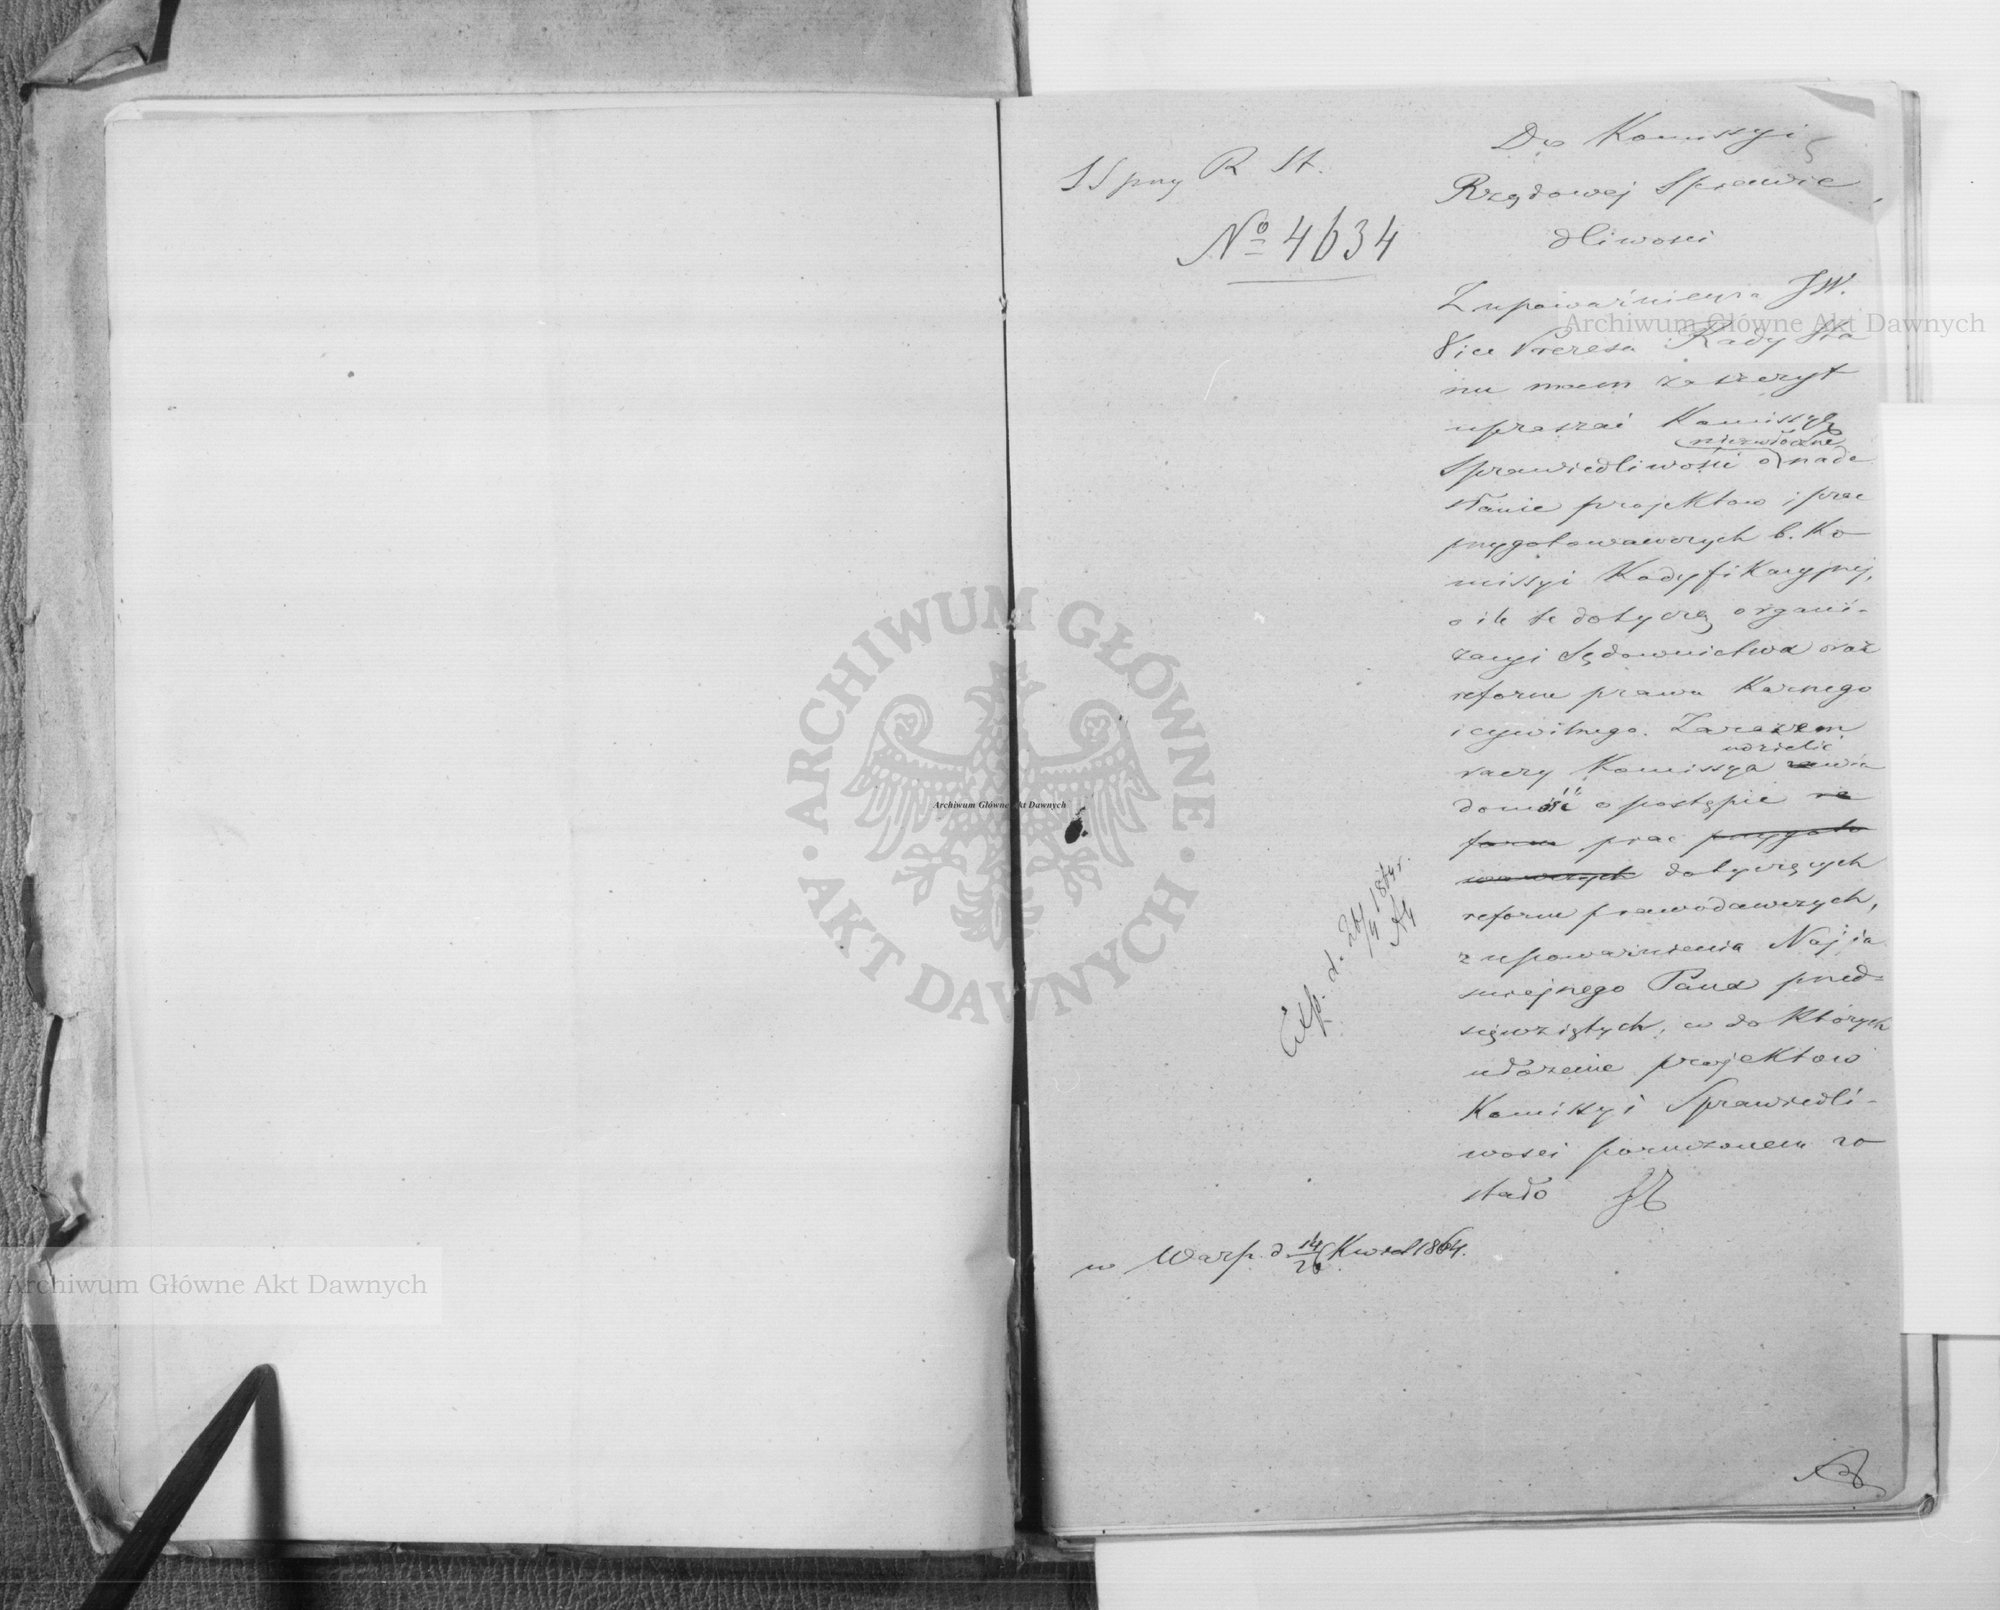 SS pny R St.
No 4634
Do Komissyi
Rządowej Sprawie
dliwosci
Z upoważnienia JW.
Vice Prezesa Rady Sta
nu mam zaszczyt
upraszać Komissyę
niezwłoczne
Sprawiedliwości o nade
słanie projektow i prac
przygotowawczych b. Ko
missyi Kodyfikacyjnej,
o ile te dotyczą organi-
zacyi Sądownictwa oraz
reform prawa Karnego
i cywilnego. Zarazem
udzielić
raczy Komissya wia
domość o postępie re
form prac przygoto
wawczych dotyczących
reform prawodawczych,
z upoważnienia Najja
śniejnego Pana przed-
sięwziętych, co do Których
ułożenie projektow
Komissyi Sprawiedli-
wosci poruczonem zo
stało
Exp. d. 26/4 1864 r.
w Warsz. d. 14/26 Kwiet 1864.
Archiwum Główne Akt Dawnych
Archiwum Główne Akt Dawnych
Archiwum Główne Akt Dawnych
ARCHIWUM GŁÓWNE · AKT DAWNYCH ·